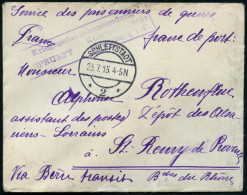 Service des prisonniers de guerre
Franz
franc de port.
GEPRÜFT
SCHLETTSTADT
23.7.15.4-5N
* 2 *
Monsieur
Alphonse Rothenflue
assistant des postes Dépôt des Alsa
ciens-Lorrains
à St. Remy de Provence
Via Bern transit Bches du Rhône